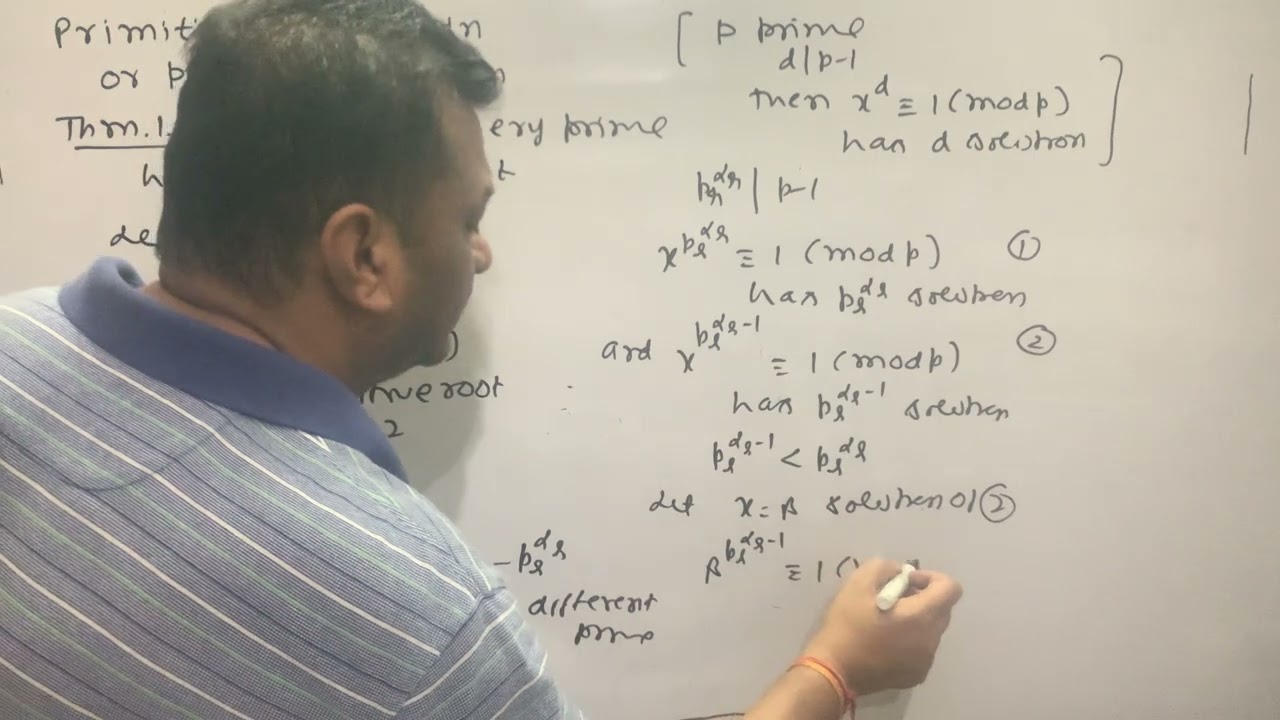 Primiti
or p
Thm. 1. ery prime
h t
)
ive root
2
- p_r^{α_r}
different
prime
[ p prime
d | p-1
then x^d ≡ 1 (mod p)
has d solution ]
p_r^{α_r} | p-1
x^{p_r^{α_r}} ≡ 1 (mod p) ①
has p_r^{α_r} solution
and x^{p_r^{α_r-1}} ≡ 1 (mod p) ②
has p_r^{α_r-1} solution
p_r^{α_r-1} < p_r^{α_r}
Let x = β solution of ②
β^{p_r^{α_r-1}} ≡ 1 (